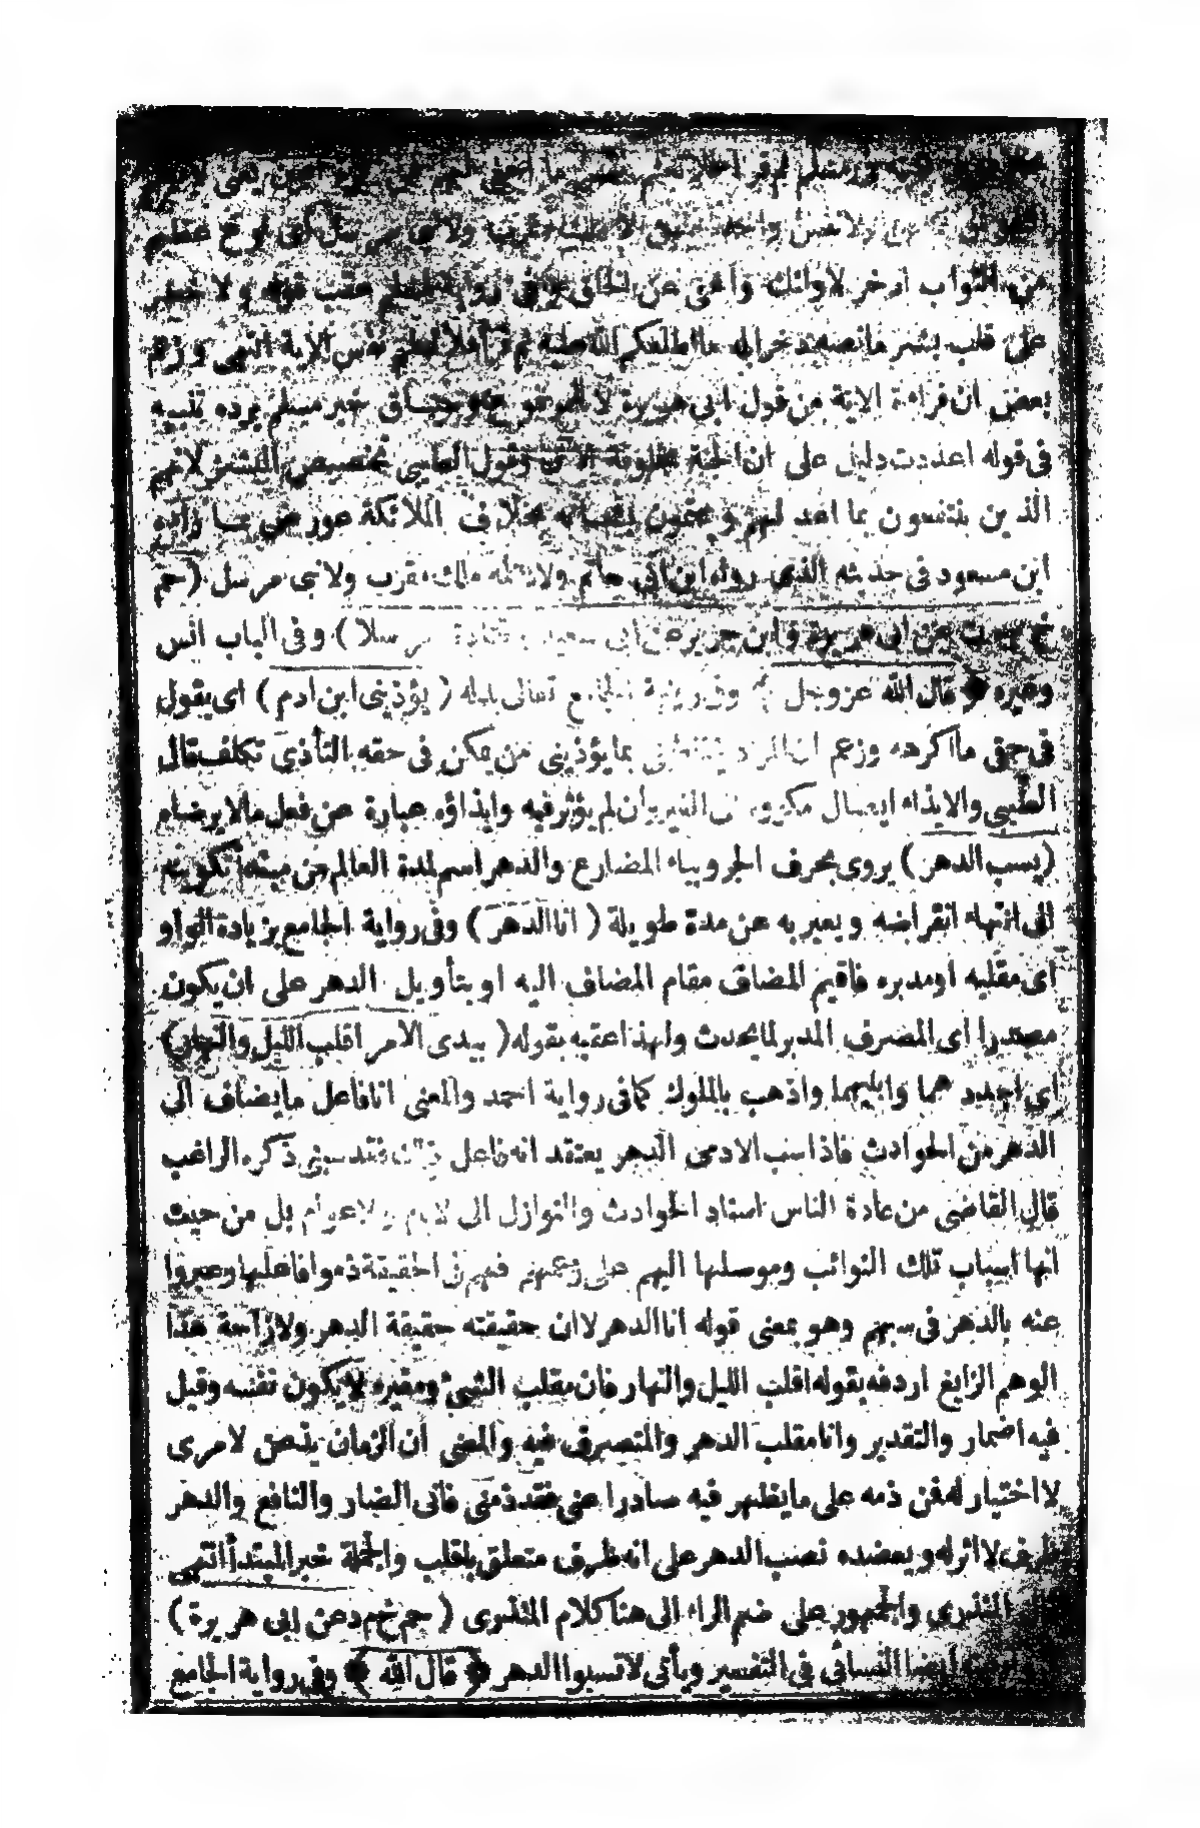 ومسلم ثم قرأ فلا تعلم نفس ما اخفى لهم من
ولا ملك مقرب ولا نبي مرسل اى نوع عظيم
من الثواب ادخر لاولئك واخفى عن الخلق وفى رواية لمسلم عقب قوله ولا خطر
على قلب بشر ما اطلعكم الله عليه ثم قرأ فلا تعلم نفس الآية انتهى وزعم
بعض ان قراءة الاية من قول ابى هريرة لا المرفوع وسياق خبر مسلم يرده تنبيه
فى قوله اعددت دليل على ان الجنة مخلوقة الآن وقول الطيبى تخصيص البشر لانهم
الذين ينتفعون بما اعد لهم ويهتمون بشانه بخلاف الملائكة عورض بما زاده
ابن مسعود فى حديثه الذى رواه ابن ابى حاتم ولا يعلمه ملك مقرب ولا نبى مرسل (حم
خ م ت عن ابى هريرة وابن جرير عن ابى سعيد وقتادة مرسلا) وفى الباب انس
وغيره ﴿ قال الله عز وجل ﴾ وفى رواية الجامع تعالى بدله (يؤذينى ابن ادم) اى يقول
فى حقى ما اكره وزعم ان المراد بما يؤذينى من يمكن فى حقه التأذى تكلف قال
الطيبى والايذاء ايصال مكروه الى الغير وان لم يؤثر فيه وايذاؤه عبارة عن فعل ما لا يرضاه
(يسب الدهر) يروى بحرف الجر وبياء المضارع والدهر اسم لمدة العالم من مبتدأ تكوينه
الى انتهاء انقراضه ويعبر به عن مدة طويلة (انا الدهر) وفى رواية الجامع بزيادة الواو
اى مقلبه او مدبره فاقيم المضاف مقام المضاف اليه او بتأويل الدهر على ان يكون
مصدرا اى المصرف المدبر لما يحدث ولهذا عقبه بقوله (بيدى الامر اقلب الليل والنهار)
اى اجددهما وابليهما واذهب بالملوك كما فى رواية احمد والمعنى انا فاعل ما يضاف الى
الدهر من الحوادث فاذا سب الادمى الدهر يعتقد انه فاعل ذلك فقد سبنى ذكره الراغب
قال القاضى من عادة الناس اسناد الحوادث والنوازل الى الايام والاعوام بل من حيث
انها اسباب تلك النوائب وموصلها اليهم على زعمهم فهم فى الحقيقة ذموا فاعلها وعبروا
عنه بالدهر فى سبهم وهو بمعنى قوله انا الدهر لا ان حقيقته حقيقة الدهر ولازاحة هذا
الوهم الزايغ اردفه بقوله اقلب الليل والنهار فان مقلب الشئ ومغيره لا يكون نفسه وقيل
فيه اضمار والتقدير وانا مقلب الدهر والمتصرف فيه والمعنى ان الزمان يذعن لامرى
لا اختيار له فمن ذمه على ما يظهر فيه صادرا عنى فقد ذمنى فانى الضار والنافع والدهر
ظرف لا اثر له ويعضده نصب الدهر على انه ظرف متعلق باقلب والجملة خبر المبتدأ انتهى
المنذرى والجمهور على ضم الراء الى هنا كلام المنذرى (حم خ م د عن ابى هريرة)
ايضا النسائى فى التفسير ويأتى لا تسبوا الدهر ﴿ قال الله ﴾ وفى رواية الجامع